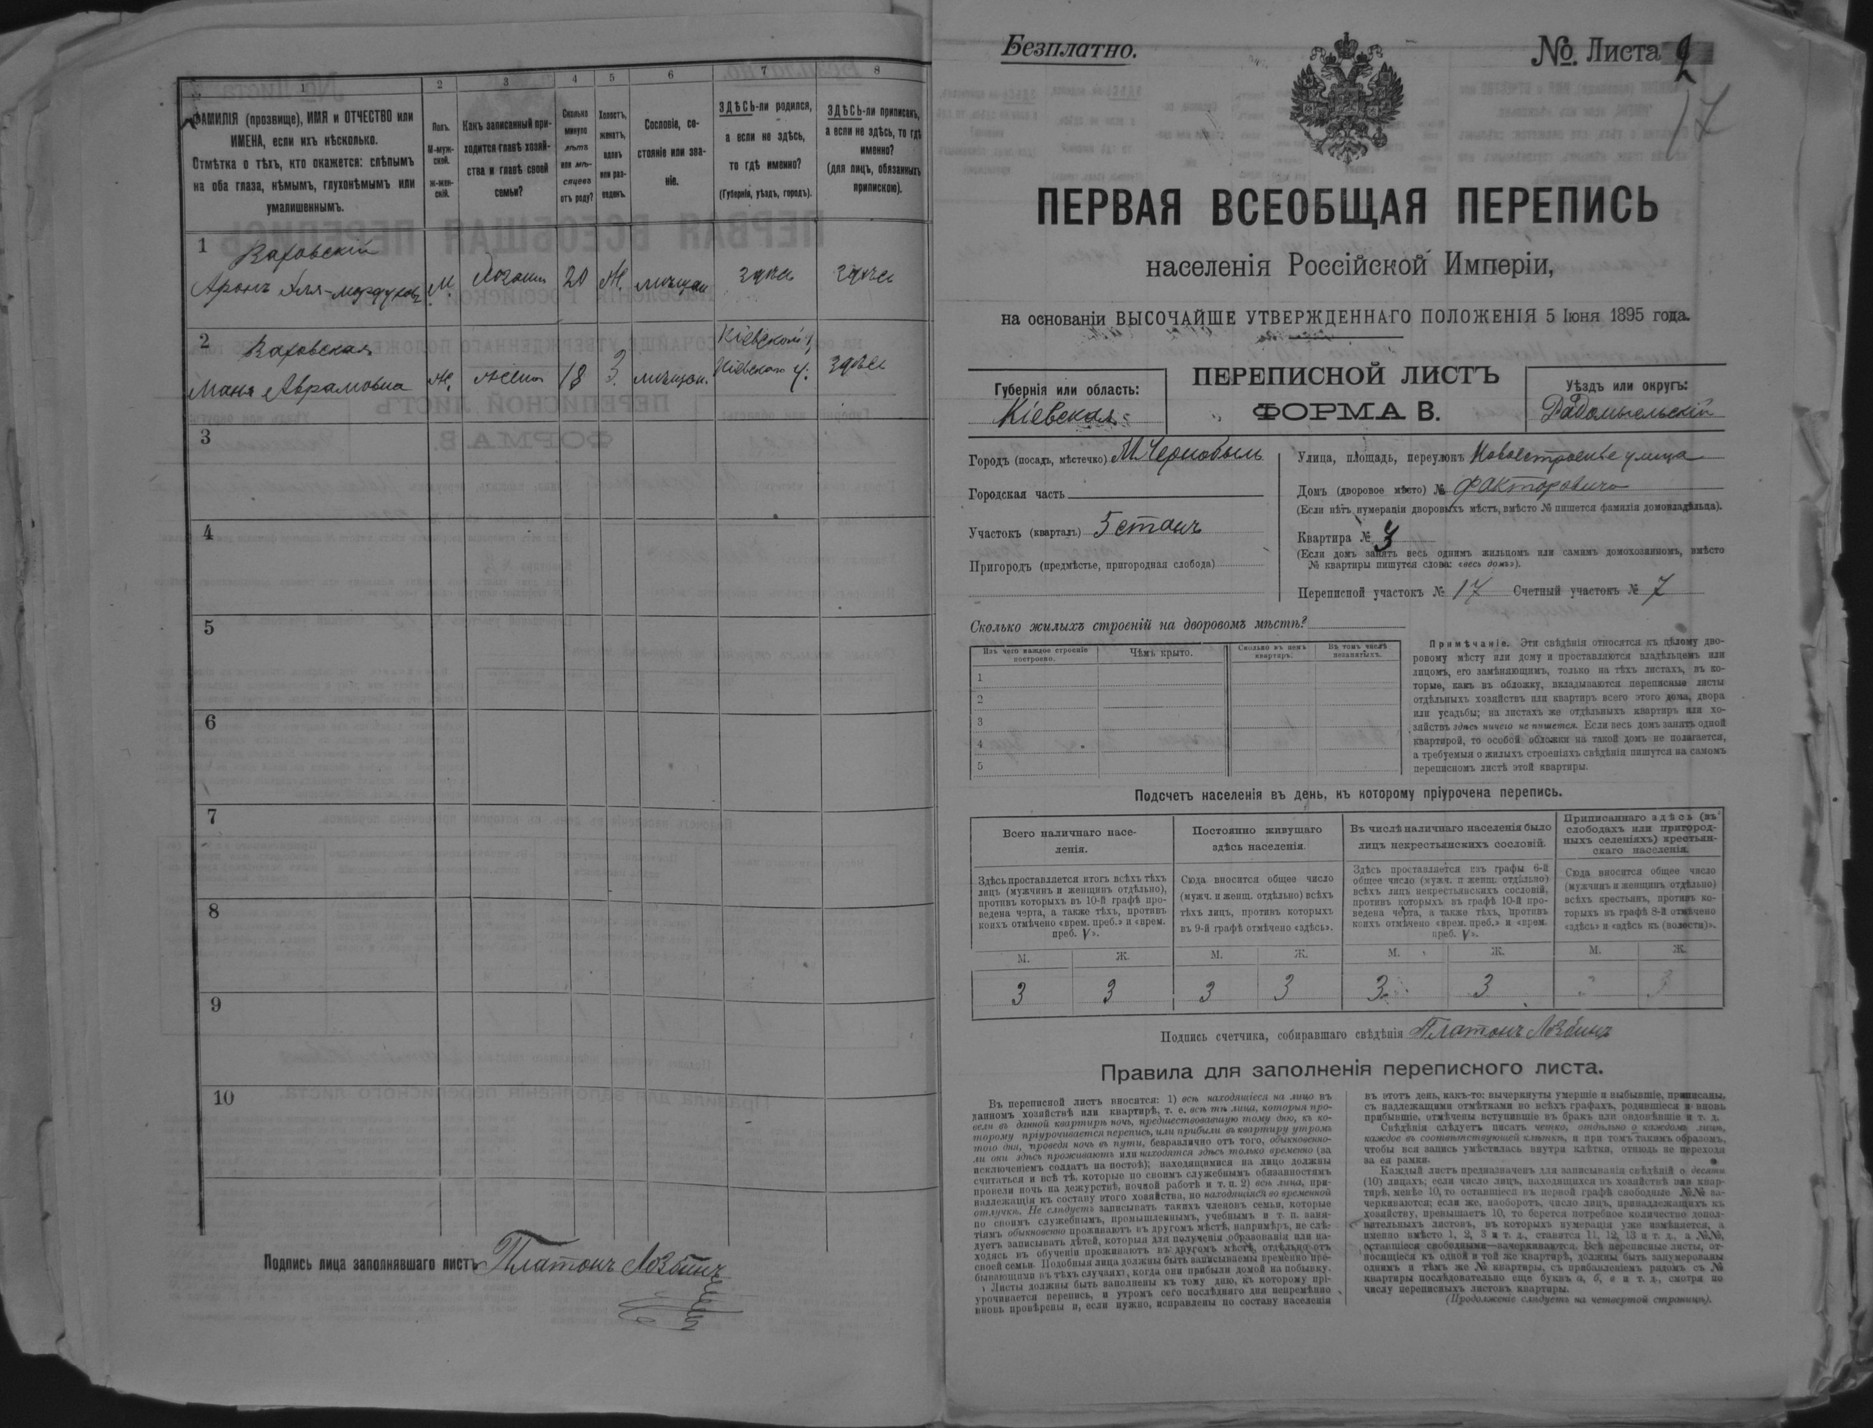 1
2
3
4
5
6
7
8
ФАМИЛІЯ (прозвище), ИМЯ и ОТЧЕСТВО или
ИМЕНА, если ихъ нѣсколько.
Отмѣтка о тѣхъ, кто окажется: слѣпымъ
на оба глаза, нѣмымъ, глухонѣмымъ или
умалишеннымъ.
Полъ.
М-муж-
ской.
ж-жен-
скій.
Какъ записанный при-
ходится главѣ хозяй-
ства и главѣ своей
семьи?
Сколько
минуло
лѣтъ
или мѣ-
сяцевъ
отъ роду?
Холостъ,
женатъ,
вдовъ
или раз-
веденъ.
Сословіе, со-
стояніе или зва-
ніе.
ЗДѢСЬ-ли родился,
а если не здѣсь,
то гдѣ именно?
(Губернія, уѣздъ, городъ).
ЗДѢСЬ-ли приписанъ,
а если не здѣсь, то гдѣ
именно?
(для лицъ, обязанныхъ
припискою).
1
Аронъ
М.
20
Ж.
здѣсь
здѣсь
2
Маня Аврамовна
Ж.
жена
18
З.
мѣщан.
Кіевской г.
Кіевскаго у.
здѣсь
3
4
5
6
7
8
9
10
Подпись лица заполнявшаго листъ Платонъ
Безплатно.
№ Листа 2
17
ПЕРВАЯ ВСЕОБЩАЯ ПЕРЕПИСЬ
населенія Россійской Имперіи,
на основаніи ВЫСОЧАЙШЕ УТВЕРЖДЕННАГО ПОЛОЖЕНІЯ 5 Іюня 1895 года.
Губернія или область:
Кіевская
ПЕРЕПИСНОЙ ЛИСТЪ
ФОРМА В.
Уѣздъ или округъ:
Радомысльскій
Городъ (посадъ, мѣстечко) М. Чернобыль
Городская часть
Участокъ (кварталъ) 5 станъ
Пригородъ (предмѣстье, пригородная слобода)
Улица, площадь, переулокъ Новостроенье улица
Домъ (дворовое мѣсто) № Факторовича
(Если нѣтъ нумераціи дворовыхъ мѣстъ, вмѣсто № пишется фамилія домовладѣльца).
Квартира № 3
(Если домъ занятъ весь однимъ жильцомъ или самимъ домохозяиномъ, вмѣсто
№ квартиры пишутся слова: «весь домъ»).
Переписной участокъ № 17 Счетный участокъ № 7
Сколько жилыхъ строеній на дворовомъ мѣстѣ?
Изъ чего каждое строеніе
построено.
Чѣмъ крыто.
Сколько въ немъ
квартиръ.
Въ томъ числѣ
незанятыхъ.
1
2
3
4
5
Примѣчаніе. Эти свѣдѣнія относятся къ цѣлому дво-
ровому мѣсту или дому и проставляются владѣльцемъ или
лицомъ, его замѣняющимъ, только на тѣхъ листахъ, въ ко-
торые, какъ въ обложку, вкладываются переписные листы
отдѣльныхъ хозяйствъ или квартиръ всего этого дома, двора
или усадьбы; на листахъ же отдѣльныхъ квартиръ или хо-
зяйствъ здѣсь ничего не пишется. Если весь домъ занятъ одной
квартирой, то особой обложки на такой домъ не полагается,
а требуемыя о жилыхъ строеніяхъ свѣдѣнія пишутся на самомъ
переписномъ листѣ этой квартиры.
Подсчетъ населенія въ день, къ которому пріурочена перепись.
Всего наличнаго насе-
ленія.
Постоянно живущаго
здѣсь населенія.
Въ числѣ наличнаго населенія было
лицъ некрестьянскихъ сословій.
Приписаннаго здѣсь (въ
слободахъ или пригород-
ныхъ селеніяхъ) крестьян-
скаго населенія.
Здѣсь проставляется итогъ всѣхъ тѣхъ
лицъ (мужчинъ и женщинъ отдѣльно),
противъ которыхъ въ 10-й графѣ про-
ведена черта, а также тѣхъ, противъ
коихъ отмѣчено «врем. преб.» и «врем.
преб. V».
Сюда вносится общее число
(мужч. и женщ. отдѣльно) всѣхъ
тѣхъ лицъ, противъ которыхъ
въ 9-й графѣ отмѣчено «здѣсь».
Здѣсь проставляется изъ графы 6-й
общее число (мужч. и женщ. отдѣльно)
всѣхъ лицъ некрестьянскихъ сословій,
противъ которыхъ въ графѣ 10-й про-
ведена черта, а также тѣхъ, противъ
коихъ отмѣчено «врем. преб.» и «врем.
преб. V».
Сюда вносится общее число
(мужчинъ и женщинъ отдѣльно)
всѣхъ крестьянъ, противъ ко-
торыхъ въ графѣ 8-й отмѣчено
«здѣсь» и «здѣсь къ (волости)».
М. Ж. М. Ж. М. Ж. М. Ж.
3 3 3 3 3 3
Подпись счетчика, собиравшаго свѣдѣнія Платонъ
Правила для заполненія переписного листа.
Въ переписной листъ вносятся: 1) всѣ находящіеся на лицо въ
данномъ хозяйствѣ или квартирѣ, т. е. всѣ тѣ лица, которыя про-
вели въ данной квартирѣ ночь, предшествовавшую тому дню, къ ко-
торому пріурочивается перепись, или прибыли въ квартиру утромъ
того дня, проведя ночь въ пути, безразлично отъ того, обыкновенно-
ли они здѣсь проживаютъ или находятся здѣсь только временно (за
исключеніемъ солдатъ на постоѣ); находящимися на лицо должны
считаться и всѣ тѣ, которые по своимъ служебнымъ обязанностямъ
провели ночь на дежурствѣ, ночной работѣ и т. п. 2) всѣ лица, при-
надлежащія къ составу этого хозяйства, но находящіяся во временной
отлучкѣ. Не слѣдуетъ записывать такихъ членовъ семьи, которые
по своимъ служебнымъ, промышленнымъ, учебнымъ и т. п. заня-
тіямъ обыкновенно проживаютъ въ другомъ мѣстѣ, напримѣръ, не слѣ-
дуетъ записывать дѣтей, которыя для полученія образованія или на-
ходясь въ обученіи проживаютъ въ другомъ мѣстѣ, отдѣльно отъ
своей семьи. Подобныя лица должны быть записываемы временно пре-
бывающими въ тѣхъ случаяхъ, когда они прибыли домой на побывку.
Листы должны быть заполнены къ тому дню, къ которому прі-
урочивается перепись, и утромъ сего послѣдняго дня непремѣнно
вновь провѣрены и, если нужно, исправлены по составу населенія
въ этотъ день, какъ-то: вычеркнуты умершіе и выбывшіе, приписаны,
съ надлежащими отмѣтками во всѣхъ графахъ, родившіеся и вновь
прибывшіе, отмѣчены вступившіе въ бракъ или овдовѣвшіе и т. д.
Свѣдѣнія слѣдуетъ писать четко, отдѣльно о каждомъ лицѣ,
каждое въ соотвѣтствующей клѣткѣ, и при томъ такимъ образомъ,
чтобы вся запись умѣстилась внутри клѣтки, отнюдь не переходя
за ея рамки.
Каждый листъ предназначенъ для записыванія свѣдѣній о десяти
(10) лицахъ; если число лицъ, находящихся въ хозяйствѣ или квар-
тирѣ, менѣе 10, то оставшіеся въ первой графѣ свободные №№ за-
черкиваются; если же, наоборотъ, число лицъ, принадлежащихъ къ
хозяйству, превышаетъ 10, то берется потребное количество допол-
нительныхъ листовъ, въ которыхъ нумерація уже измѣняется, а
именно вмѣсто 1, 2, 3 и т. д., ставятся 11, 12, 13 и т. д., а №№,
оставшіеся свободными—зачеркиваются. Всѣ переписные листы, от-
носящіеся къ одной и той же квартирѣ, должны быть занумерованы
однимъ и тѣмъ же № квартиры, съ прибавленіемъ рядомъ съ №
квартиры послѣдовательно еще буквъ а, б, в и т. д., смотря по
числу переписныхъ листовъ квартиры.
(Продолженіе слѣдуетъ на четвертой страницѣ).